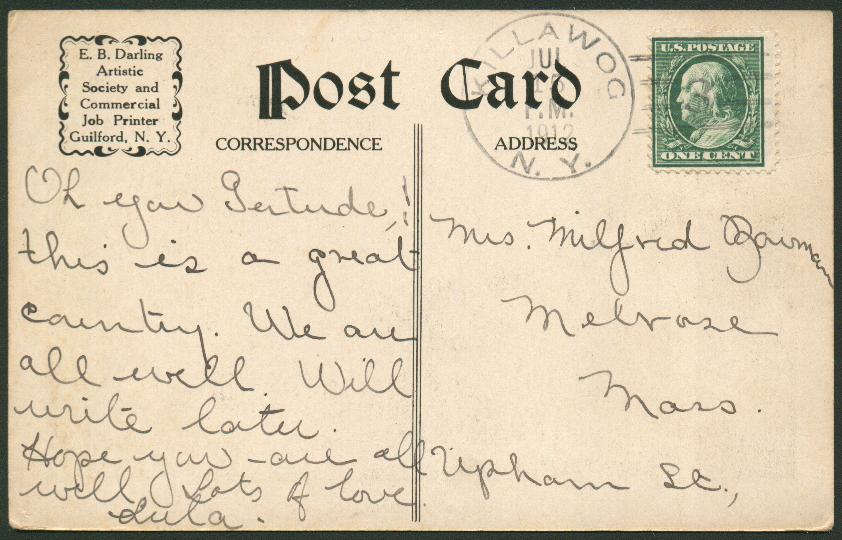 E. B. Darling
Artistic
Society and
Commercial
Job Printer
Guilford, N. Y.
Post Card
CORRESPONDENCE
ADDRESS
KILLAWOG
JUL
P.M.
1912
N. Y.
U.S. POSTAGE
ONE CENT
Oh you Gertude,!
this is a great
country. We are
all well. Will
write later.
Hope you are all
well Lots of love
Lula.
Mrs. Milfred Bowman
Melrose
Mass.
Upham St.,